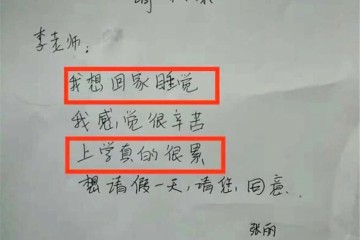 李老师：
我想回家睡觉
我感觉很辛苦
上学真的很累
想请假一天，请您，同意.
张丽